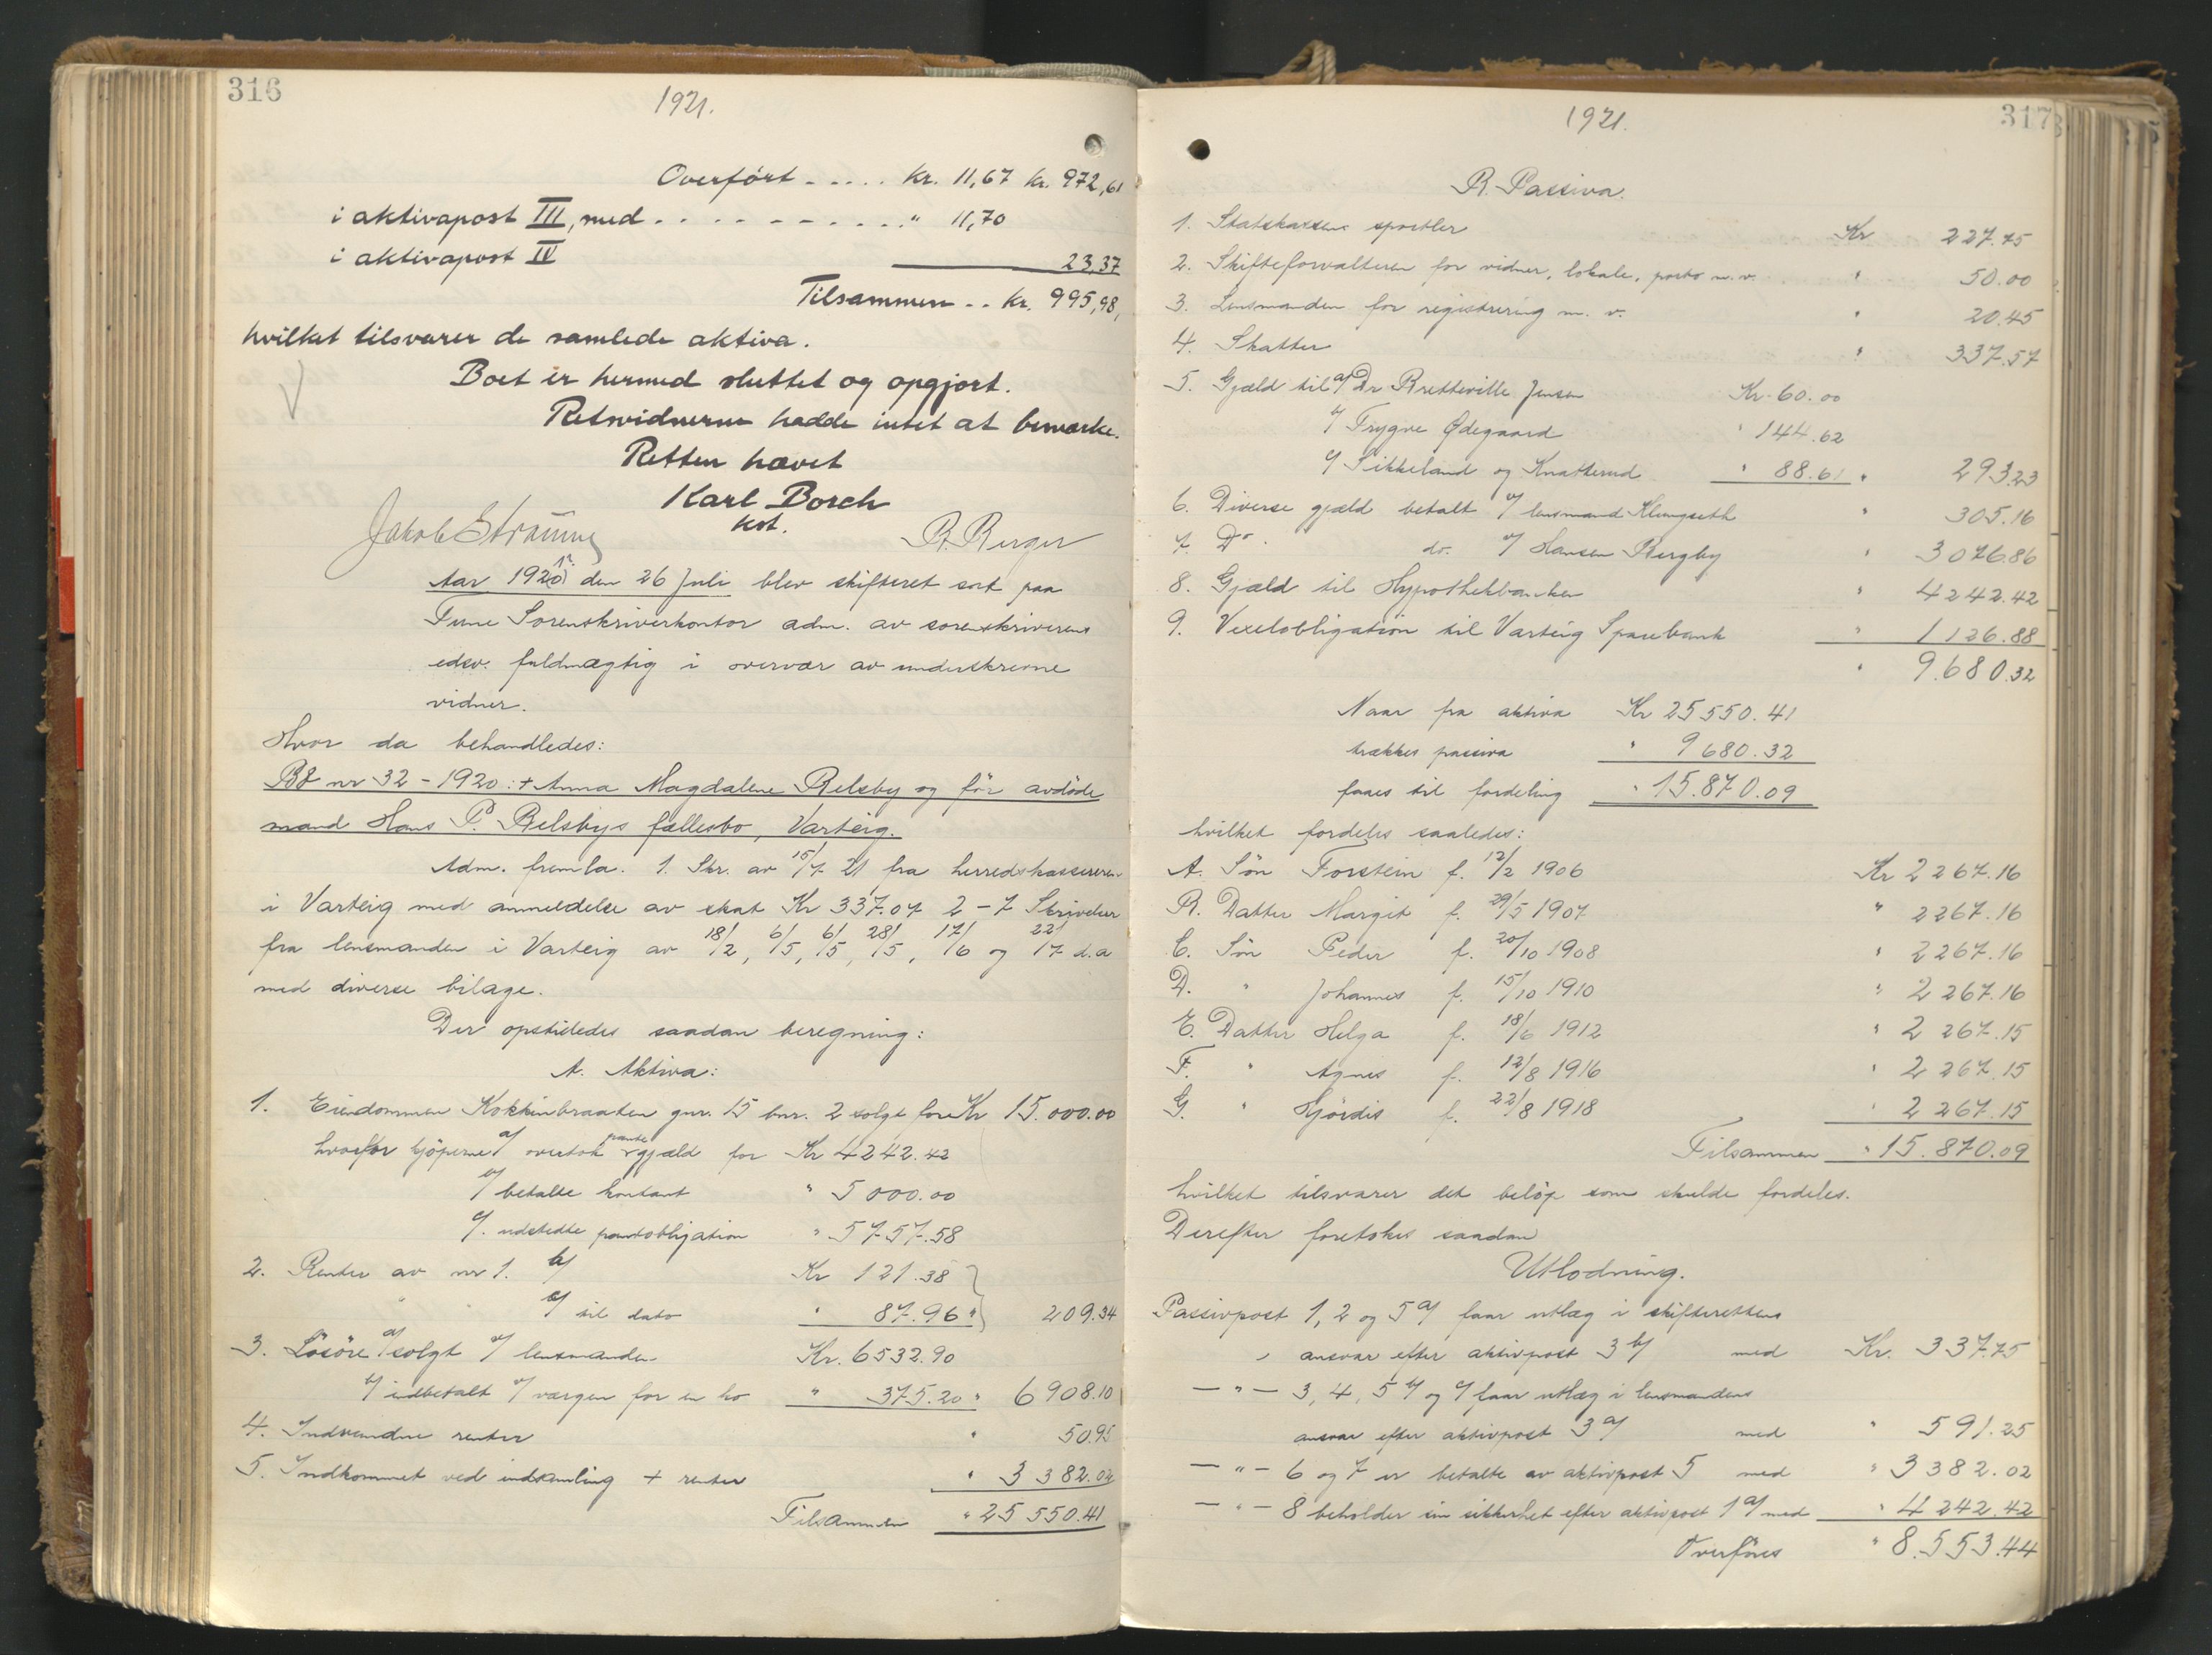 316
1921.
Overført ..... Kr. 11,67 Kr. 972,61
i aktivapost III, med .......... " 11,70
i aktivapost IV 23,37
Tilsammen .. Kr. 995,98,
hvilket tilsvarer de samlede aktiva.
Boet er hermed sluttet og opgjort.
Retsvidnerne hadde intet at bemerke.
Retten hævet
Karl Borch
kst.
Jakob Strømme B. Berger
Aar 1921 den 26 Juli blev skifteret sat paa
Tune Sorenskriverkontor adm. av sorenskriverens
edsv. fuldmægtig i overvær av underskrevne
vidner.
Hvor da behandledes:
B8 nr 32 - 1920: + Anna Magdalene Belsby og før avdøde
mand Hans P. Belsbys fællesbo, Varteig.
Adm. fremla. 1. Skr. av 15/7 21 fra herredskassereren
i Varteig med anmeldelse av skat Kr 337.07 2 - 7 Skrivelser
fra lensmanden i Varteig av 18/2, 6/5, 6/5, 28/5, 17/6 og 22/7 d.a
med diverse bilage.
Der opstilledes saadan beregning:
A. Aktiva:
1. Eiendommen Kokkinbraaten gnr. 15 bnr. 2 solgt for Kr 15.000.00
hvorfor kjøperne a/ overtok pantegjæld for Kr 4242.42
b/ betalte kontant " 5 000.00
c/. utstedte pantobligation " 5757.58
2. Renter av nr 1. b/ Kr 121.38
" c/ til dato " 87.96 " 209.34
3. Løsøre a/ solgt v/ lensmanden Kr. 6532.90
b/ indbetalt v/ værgen for en ko " 375.20 " 6908.10
4. Indvundne renter " 50.95
5. Indkommet ved indsamling + renter " 3 382.02
Tilsammen " 25 550.41
317
1921.
B. Passiva.
1. Statskassens sportler Kr 227.75
2. Skifteforvalteren for vidner, lokale, porto m.v. " 50.00
3. Lensmanden for registrering m. v. " 20.45
4. Skatter " 337.57
5. Gjæld til a/ Dr Bretteville Jensen Kr. 60.00
b/ Trygve Ødegaard " 144.62
c/ Sikkeland og Knatterud " 88.61 " 293.23
6. Diverse gjæld betalt v/ lensmand Klungseth " 305.16
7. Do. do. v/ Hansen Bergby " 3076.86
8. Gjæld til Hypothekbanken " 4242.42
9. Vexelobligation til Varteig Sparebank " 1126.88
" 9.680.32
Naar fra aktiva Kr 25550.41
trækkes passiva " 9680.32
faaes til fordeling " 15.870.09
hvilket fordeles saaledes:
A. Søn Torstein f. 12/2 1906 Kr 2267.16
B. Datter Margit f. 29/5 1907 " 2267.16
C. Søn Peder f. 20/10 1908 " 2267.16
D. " Johannes f. 15/10 1910 " 2267.16
E. Datter Helga f. 18/6 1912 " 2267.15
F. " Agnes f. 12/8 1916 " 2267.15
G. " Hjørdis f. 22/8 1918 " 2267.15
Tilsammen " 15.870.09
hvilket tilsvarer det beløp som skulde fordeles.
Derefter foretokes saadan
Utlodning.
Passivpost 1, 2 og 5 a/ faar utlæg i skifterettens
ansvar efter aktivpost 3 b/ med Kr. 337.75
— " — 3, 4, 5 b/ og c/ faar utlæg i lensmandens
ansvar efter aktivpost 3 a/ med " 591.25
— " — 6 og 7 er betalte av aktivpost 5 med " 3382.02
— " — 8 beholder sin sikkerhet efter aktivpost 1 a/ med " 4242.42
Overføres " 8.553.44